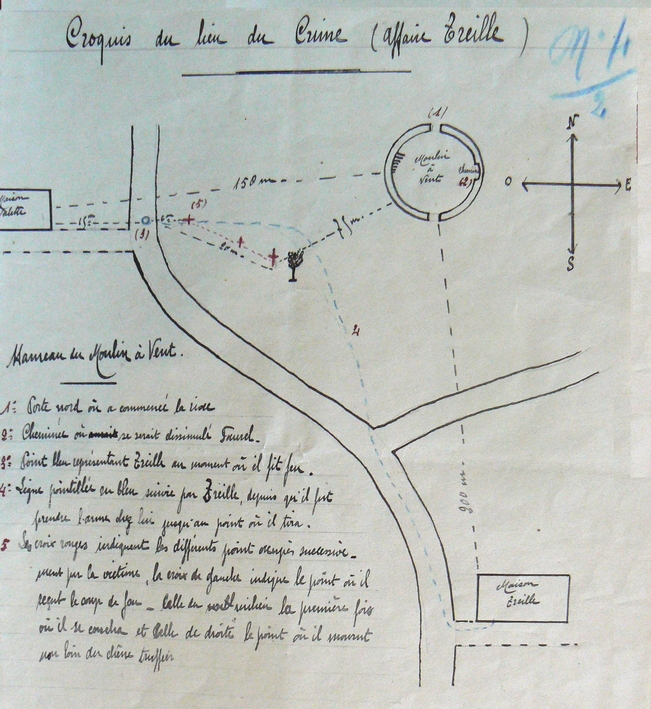 Croquis du lieu du Crime (affaire Treille)
N°4
2
(1)
N
Moulin
à
Vent
Cheminée
(2)
O
E
S
150 m
Maison
15m
(3)
(5)
75m
4
Hameau du Moulin à Vent.
1º Porte nord où a commencé la rixe
2º Cheminée où se serait dissimulé Faurel.
3º Point bleu représentant Treille au moment où il fit feu.
4º Ligne pointillée en bleu suivie par Treille, depuis qu'il fut
prendre l'arme chez lui jusqu'au point où il tira.
5 Les croix rouges indiquent les différents point occupés successive-
ment par la victime, la croix de gauche indique le point où il
reçut le coup de feu _ Celle du milieu la première fois
où il se coucha et Celle de droite le point où il mourut
non loin du chêne truffier
900 m.
Maison
Treille